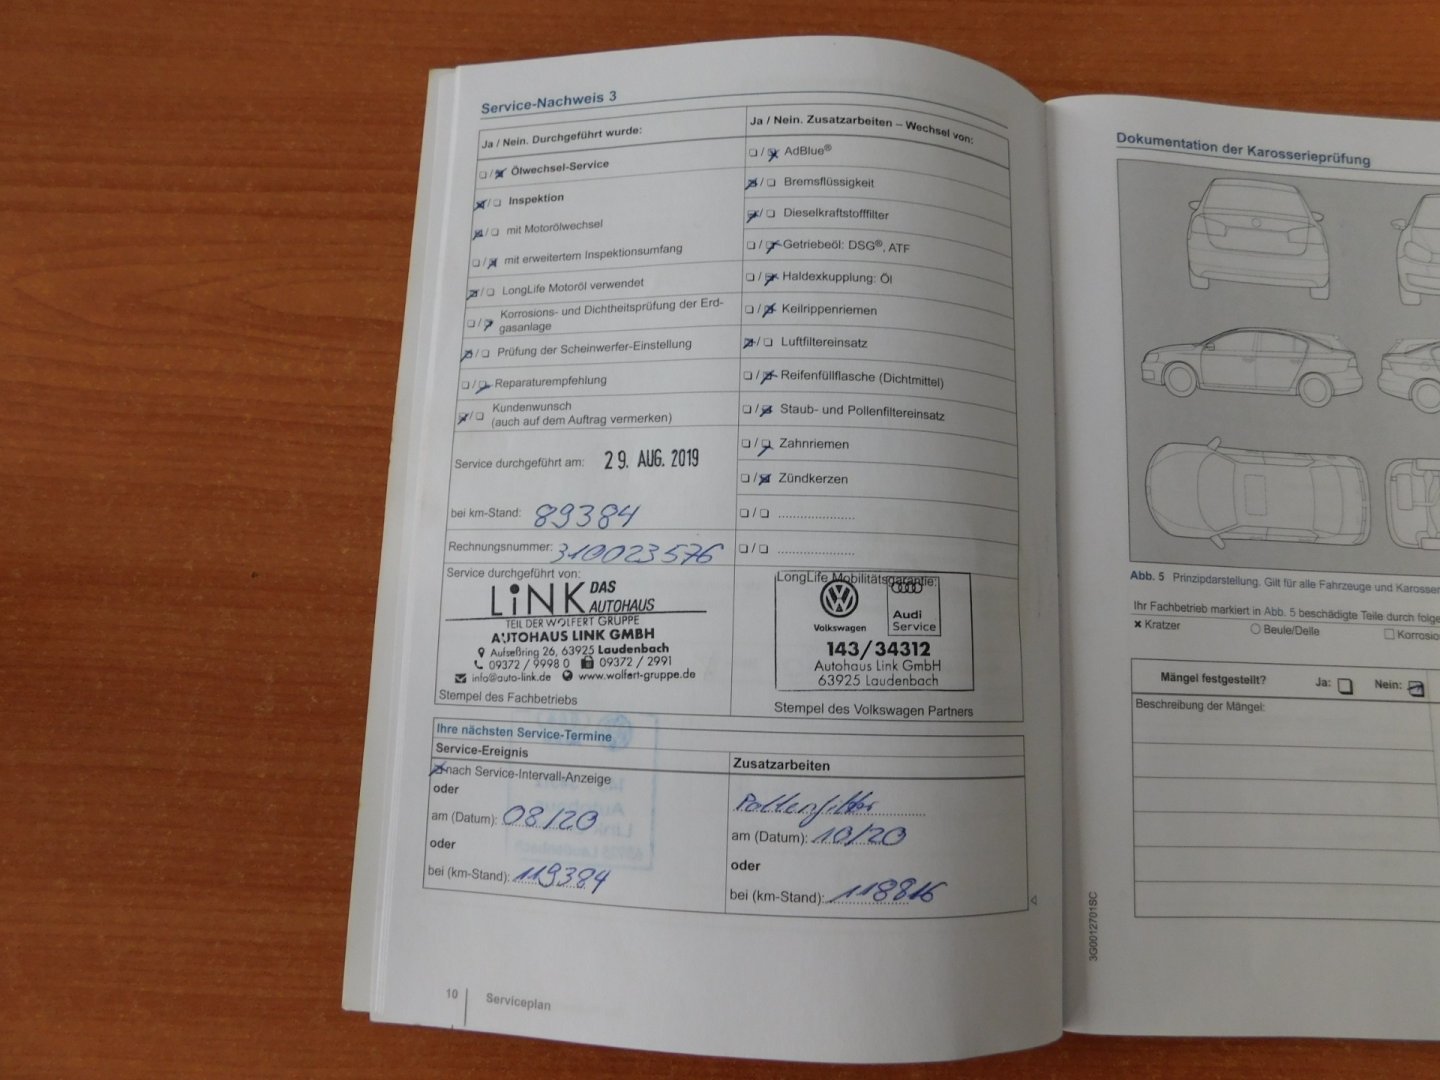 Service-Nachweis 3
Ja / Nein. Durchgeführt wurde:
Ölwechsel-Service
Inspektion
mit Motorölwechsel
mit erweitertem Inspektionsumfang
LongLife Motoröl verwendet
Korrosions- und Dichtheitsprüfung der Erd-
gasanlage
Prüfung der Scheinwerfer-Einstellung
Reparaturempfehlung
Kundenwunsch
(auch auf dem Auftrag vermerken)
Service durchgeführt am: 29. AUG. 2019
bei km-Stand: 89384
Rechnungsnummer: 310023576
Ja / Nein. Zusatzarbeiten – Wechsel von:
AdBlue®
Bremsflüssigkeit
Dieselkraftstofffilter
Getriebeöl: DSG®, ATF
Haldexkupplung: Öl
Keilrippenriemen
Luftfiltereinsatz
Reifenfüllflasche (Dichtmittel)
Staub- und Pollenfiltereinsatz
Zahnriemen
Zündkerzen
Service durchgeführt von:
LiNK DAS
AUTOHAUS
TEIL DER WOLFERT GRUPPE
AUTOHAUS LINK GMBH
Aufseßring 26, 63925 Laudenbach
09372 / 9998 0 09372 / 2991
info@auto-link.de www.wolfert-gruppe.de
Stempel des Fachbetriebs
LongLife Mobilitätsgarantie:
Volkswagen
Audi
Service
143/34312
Autohaus Link GmbH
63925 Laudenbach
Stempel des Volkswagen Partners
Ihre nächsten Service-Termine
Service-Ereignis
nach Service-Intervall-Anzeige
oder
am (Datum): 08/20
oder
bei (km-Stand): 119384
Zusatzarbeiten
Pollenfilter
am (Datum): 10/20
oder
bei (km-Stand): 118816
10 Serviceplan
Dokumentation der Karosserieprüfung
Abb. 5 Prinzipdarstellung. Gilt für alle Fahrzeuge und Karosser
Ihr Fachbetrieb markiert in Abb. 5 beschädigte Teile durch folge
Kratzer Beule/Delle Korrosio
Mängel festgestellt? Ja: Nein:
Beschreibung der Mängel:
3G0012701SC